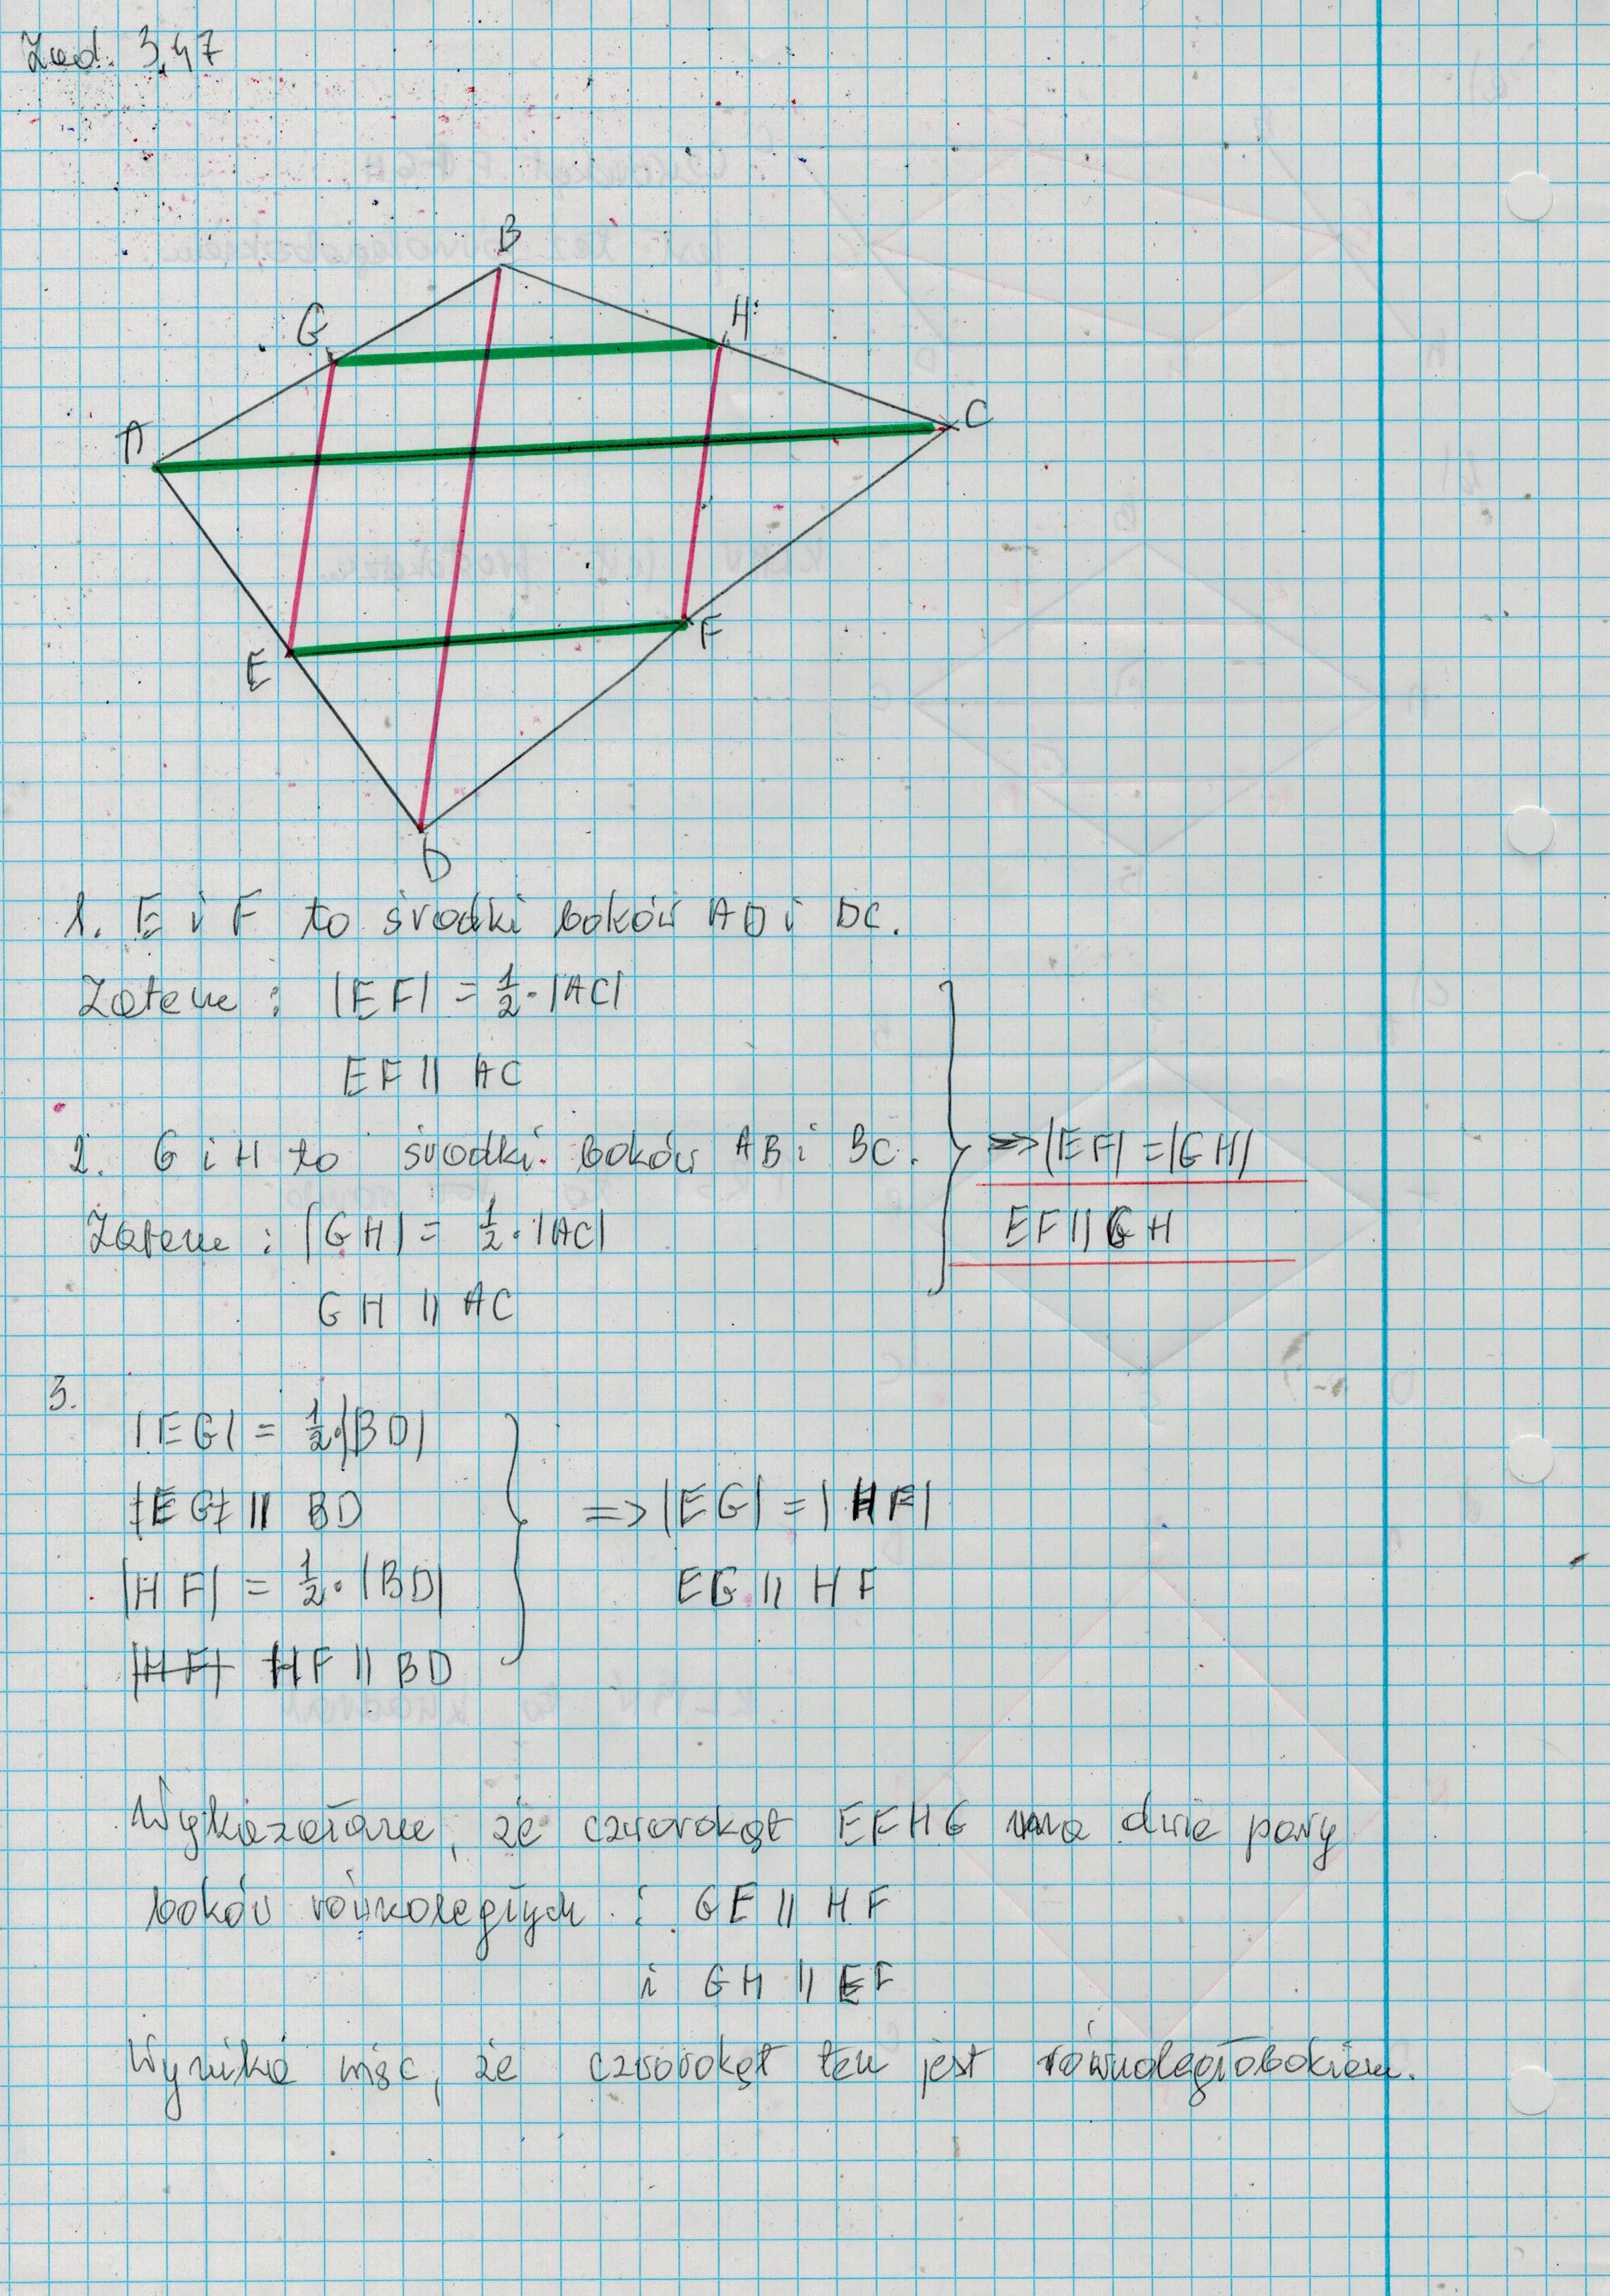 Zad. 3.47
B
G
H
A
C
E
F
D
1. E i F to środki boków AD i DC.
Zatem : |EF| = 1/2 · |AC|
EF || AC
2. G i H to środki boków AB i BC. => |EF| = |GH|
Zatem : |GH| = 1/2 · |AC| EF || GH
GH || AC
3.
|EG| = 1/2 · |BD|
EG || BD => |EG| = |HF|
|HF| = 1/2 · |BD| EG || HF
|HF| HF || BD
Wykazałam, że czworokąt EFHG ma dwie pary
boków równoległych : GE || HF
i GH || EF
Wynika więc, że czworokąt ten jest równoległobokiem.